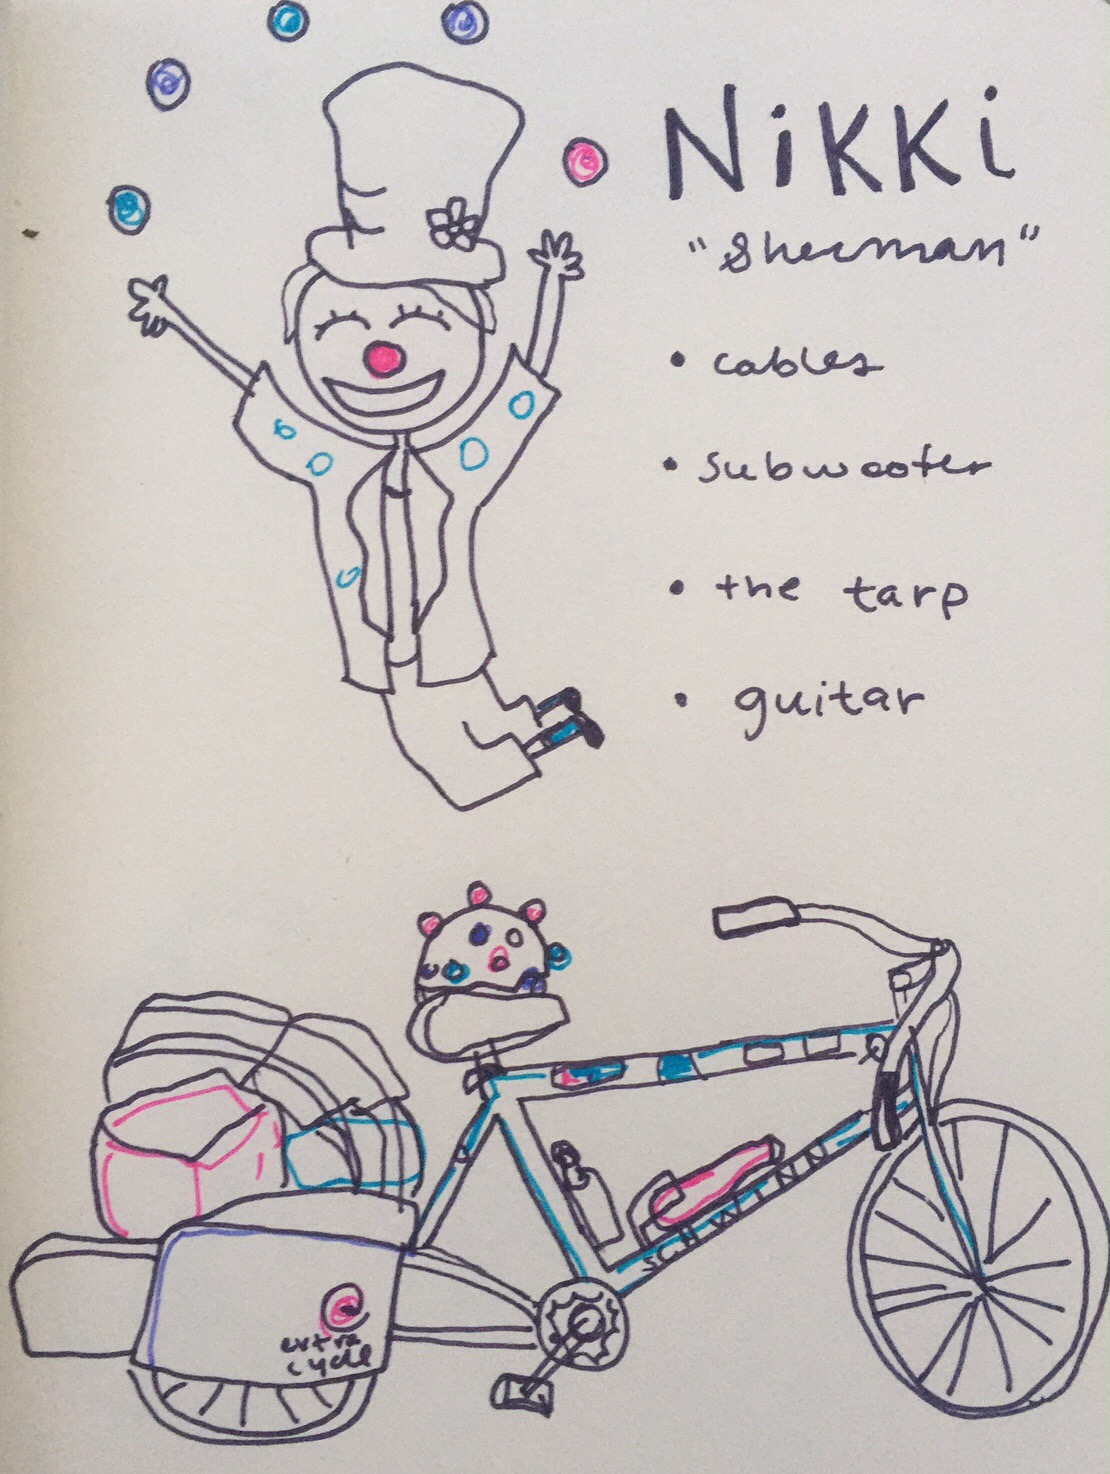 Nikki
"Sherman"
• cables
• subwoofer
• the tarp
• guitar
SCHWINN
extra
cycle